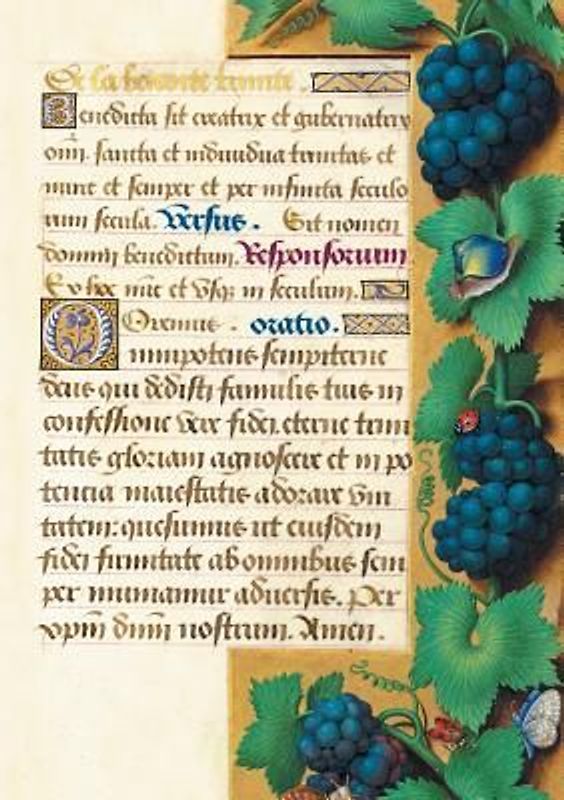 De la benoite trinite.
Benedicta sit creatrix et gubernatrix
om̄. sancta et indiuidua trinitas et
nunc et semper et per infinita seculo
rum secula. Versus. Sit nomen
domini benedictum. Responsorium
Ex hoc nūc et vsq; in seculum.
Oremus. oratio.
Omnipotens sempiterne
deus qui dedisti famulis tuis in
confessione vere fidei. eterne trini
tatis gloriam agnoscere et in po
tencia maiestatis adorare vni
tatem: quesumus ut eiusdem
fidei firmitate ab omnibus sem
per muniamur aduersis. Per
xp̄m dn̄m nostrum. Amen.